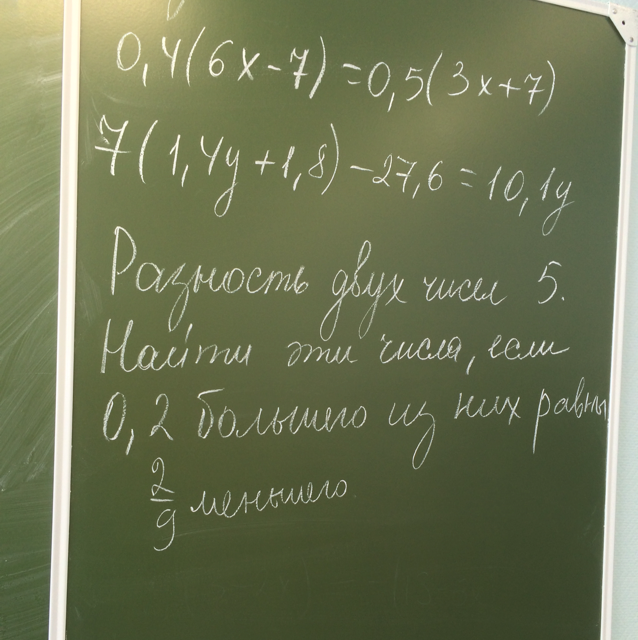 0,4(6x-7)=0,5(3x+7)
7(1,4y+1,8)-27,6=10,1y
Разность двух чисел 5.
Найти эти числа, если
0,2 большего из них равны
2/9 меньшего.